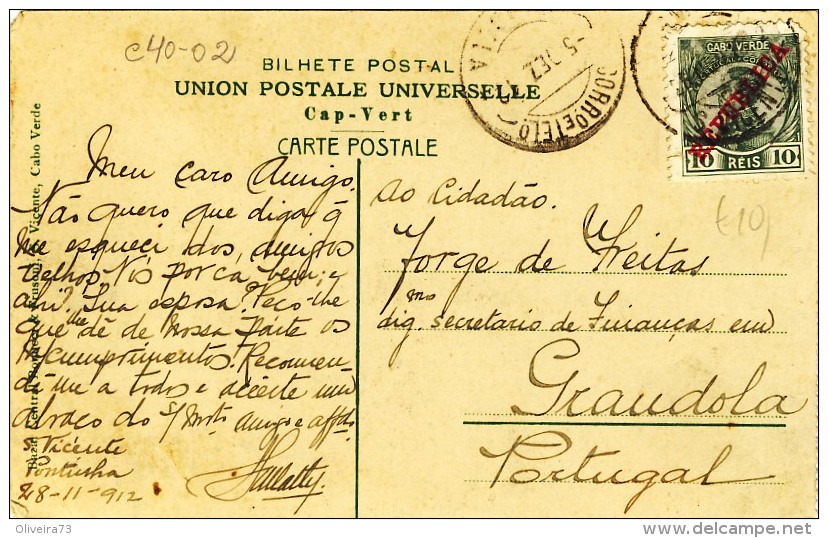 c40-02
BILHETE POSTAL
UNION POSTALE UNIVERSELLE
Cap-Vert
CARTE POSTALE
CABO VERDE
REPUBLICA
10 RÉIS 10
CORREIO
5 DEZ
£10,
Bazar Central Bonucci & Frusoni, S. Vicente, Cabo Verde
Meu caro Amigo.
Não quero que diga q
me esqueci dos amigos
velhos. Nós por cá bem, e
ahi? Sua esposa? Peço-lhe
que lhe dê de nossa parte os
cumprimentos. Recomen-
da-me a todos e aceite um
abraço do s/ mto amigo e affdo
S. Vicente
28-11-912
Ao Cidadão.
Jorge de Freitas
mo
dig. secretario de Finanças em
Grandola
Portugal
Oliveira73
delcampe.net